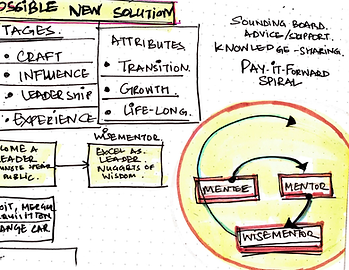 OSSIBLE NEW SOLUTION
TAGES.
• CRAFT
• INFLUENCE
• LEADERSHIP
• EXPERIENCE
ATTRIBUTES
• TRANSITION.
• GROWTH.
• LIFE-LONG.
SOUNDING BOARD.
ADVICE/SUPPORT.
KNOWLEDGE-SHARING.
PAY-IT-FORWARD
SPIRAL
OME A
EADER
PUBLIC.
WISEMENTOR.
EXCEL AS
LEADER
NUGGETS OF
WISDOM.
IT, MERGE
ANGE CAR
MENTEE
MENTOR
WISEMENTOR